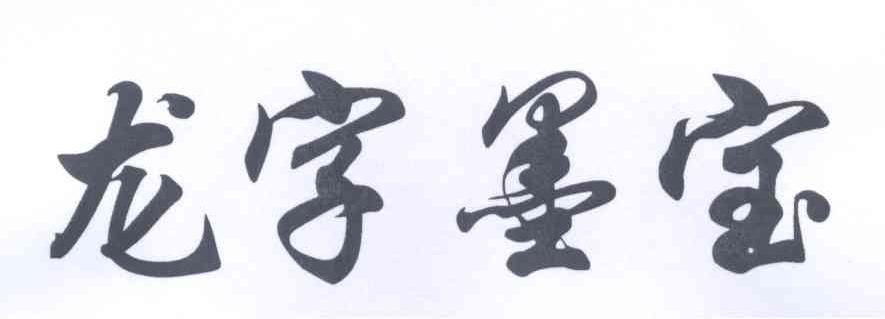 龙字墨宝